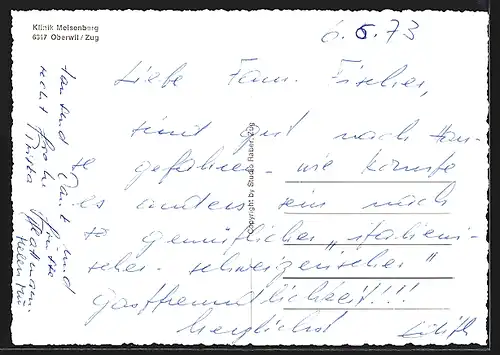 Klinik Meisenberg
6317 Oberwil / Zug
6. 5. 73
Liebe Fam. Fischer,
sind gut nach Hau-
se gefahren - wie könnte
es anders sein nach
gemütlicher „italieni-
scher - schweizerischer"
Gastfreundlichkeit!!!
herzlichst
Copyright by Studio Raber, Zug
tausend Dank und
recht frohe